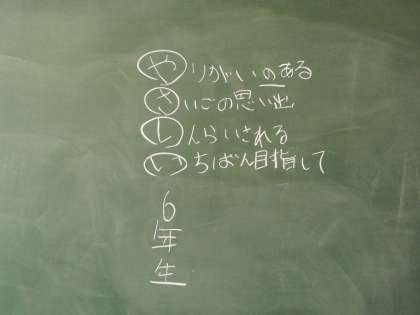 やりがいのある
さいごの思い出
しんらいされる
いちばん目指して
6
年
生